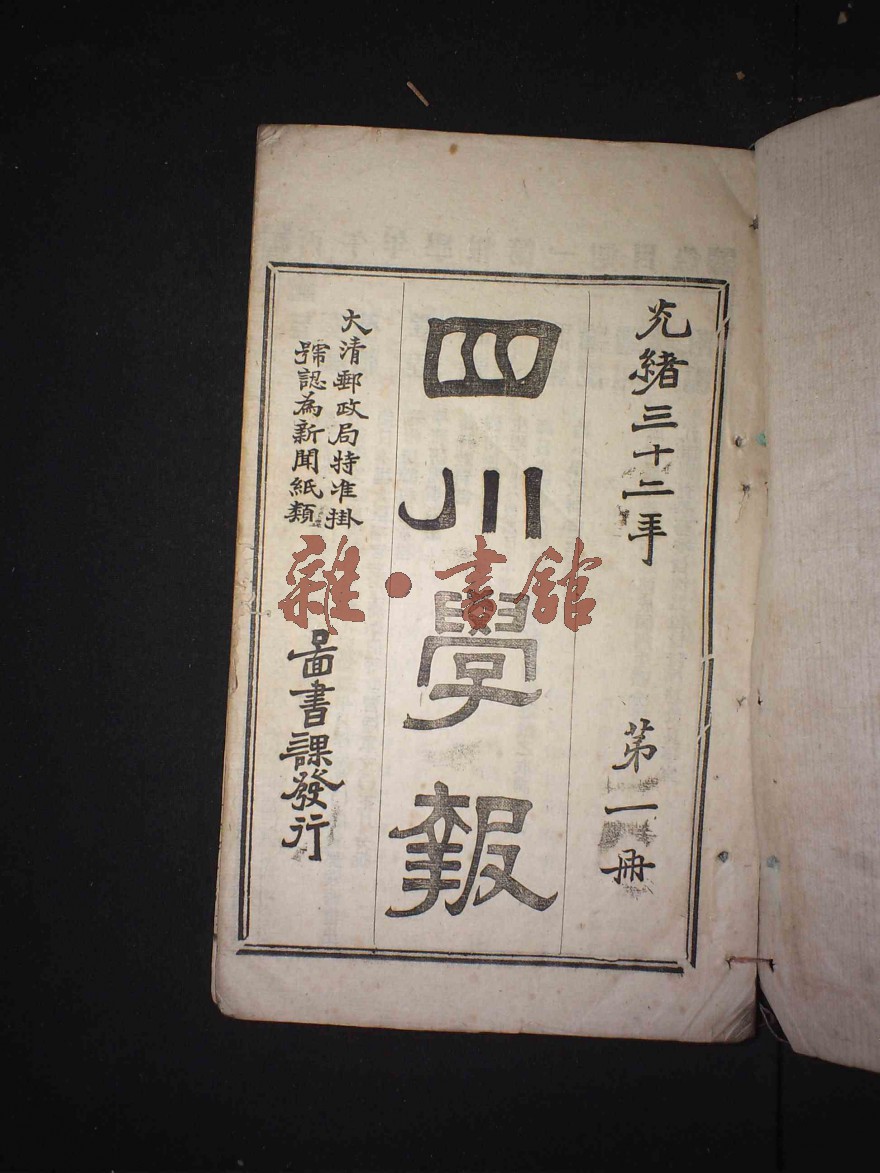 光緒三十二年 第一冊
四川學報
大清郵政局特准掛
號認為新聞紙類
圖書課發行
雜·書館